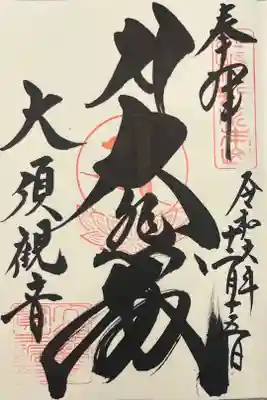 奉拝
令和六年
十五日
大悲殿
大須観音